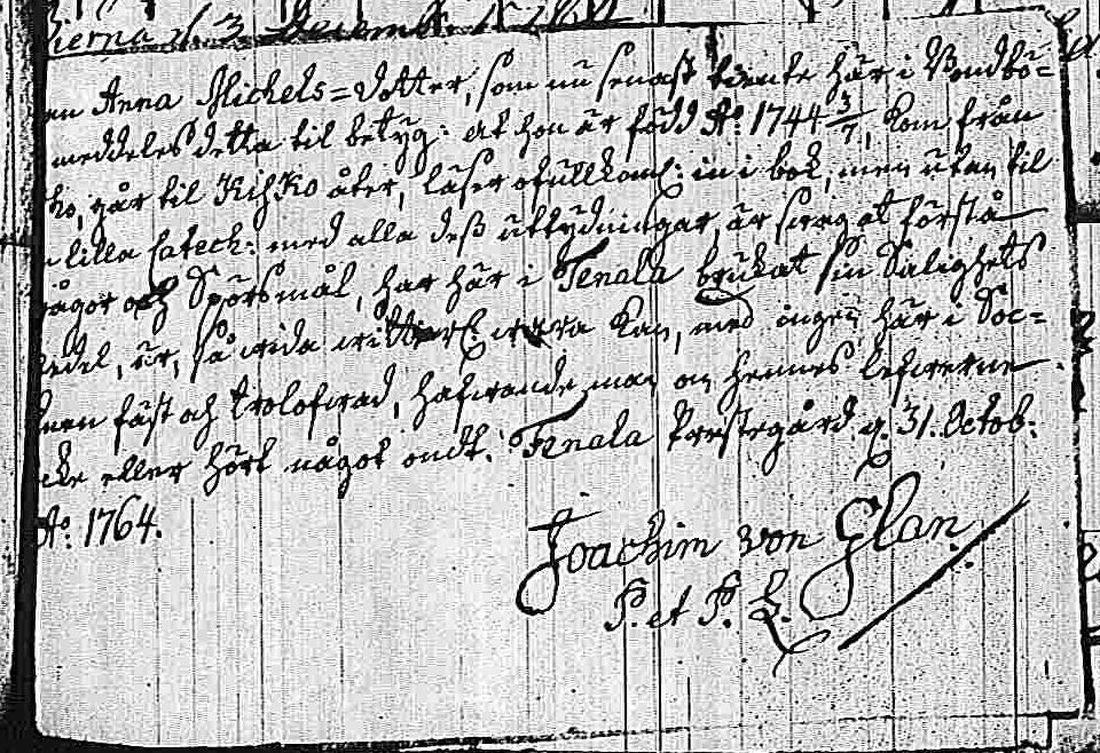 en Anna Michels=Dotter, som nu senast tiente här i Bondbö=
meddeles detta til betyg: at hon är född A:o 1744 3/7, kom från
ko, går til Kisko åter, läser ofullkoml: in i bok, men utan til
lilla Catech: med alla dess uttydningar, är swag at förstå
frågor och Spörsmål, har här i Tenala brukat sin Salighets
medel, är, så wida witterl: wara kan, med ingen här i Soc=
knen fäst och trolofwad, hafwande man om hennes lefwerne
icke eller hört något ondt. Tenala Prestegård d. 31. Octob:
A:o 1764.
Joachim von Glan.
P. et P. L.